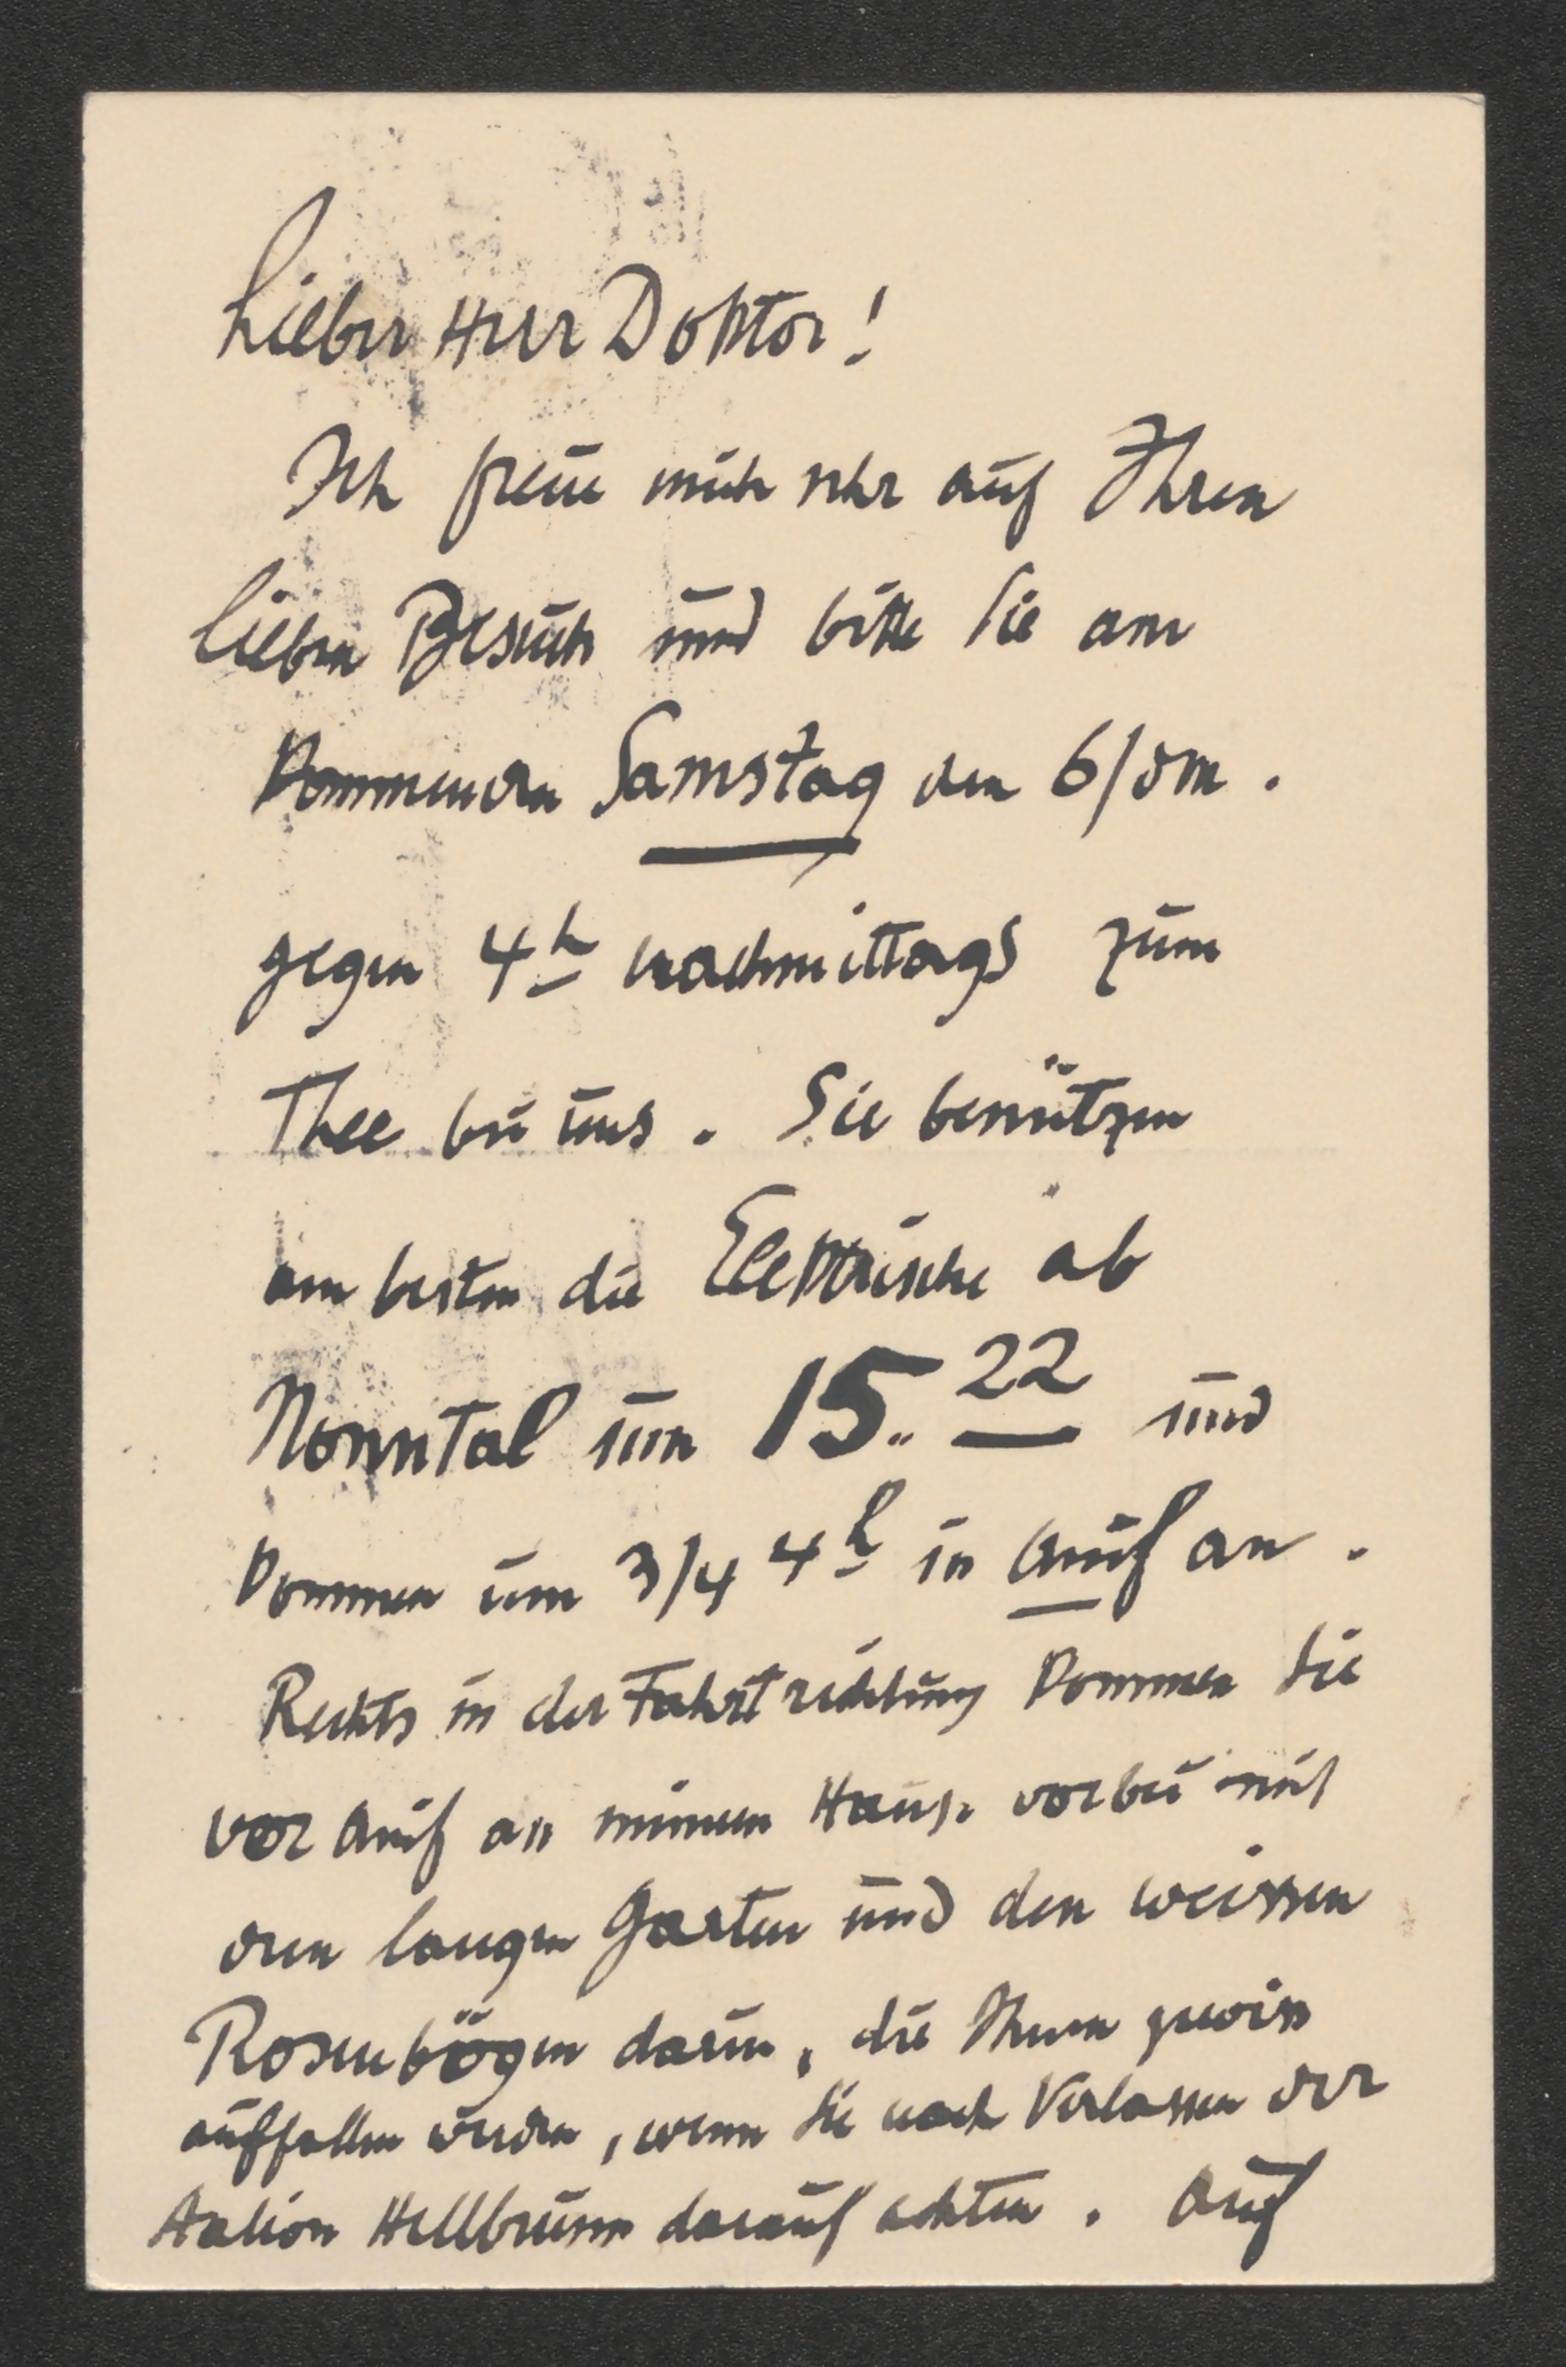 Lieber Herr Doktor!
Ich freue mich sehr auf Ihren
lieben Besuch und bitte Sie am
kommenden Samstag den 6/dm.
gegen 4h nachmittags zum
Thee bei uns. Sie benützen
am besten die Elektrische ab
Nonntal um 15.22 und
kommen um 3/4 4h in Anif an.
Rechts in der Fahrtrichtung kommen Sie
vor Anif an meinem Hause vorbei mit
dem langen Garten und den weissen
Rosenbögen darin, die Ihnen gewiss
auffallen werden, wenn Sie nach Verlassen der
Station Hellbrunn darauf achten. Auf